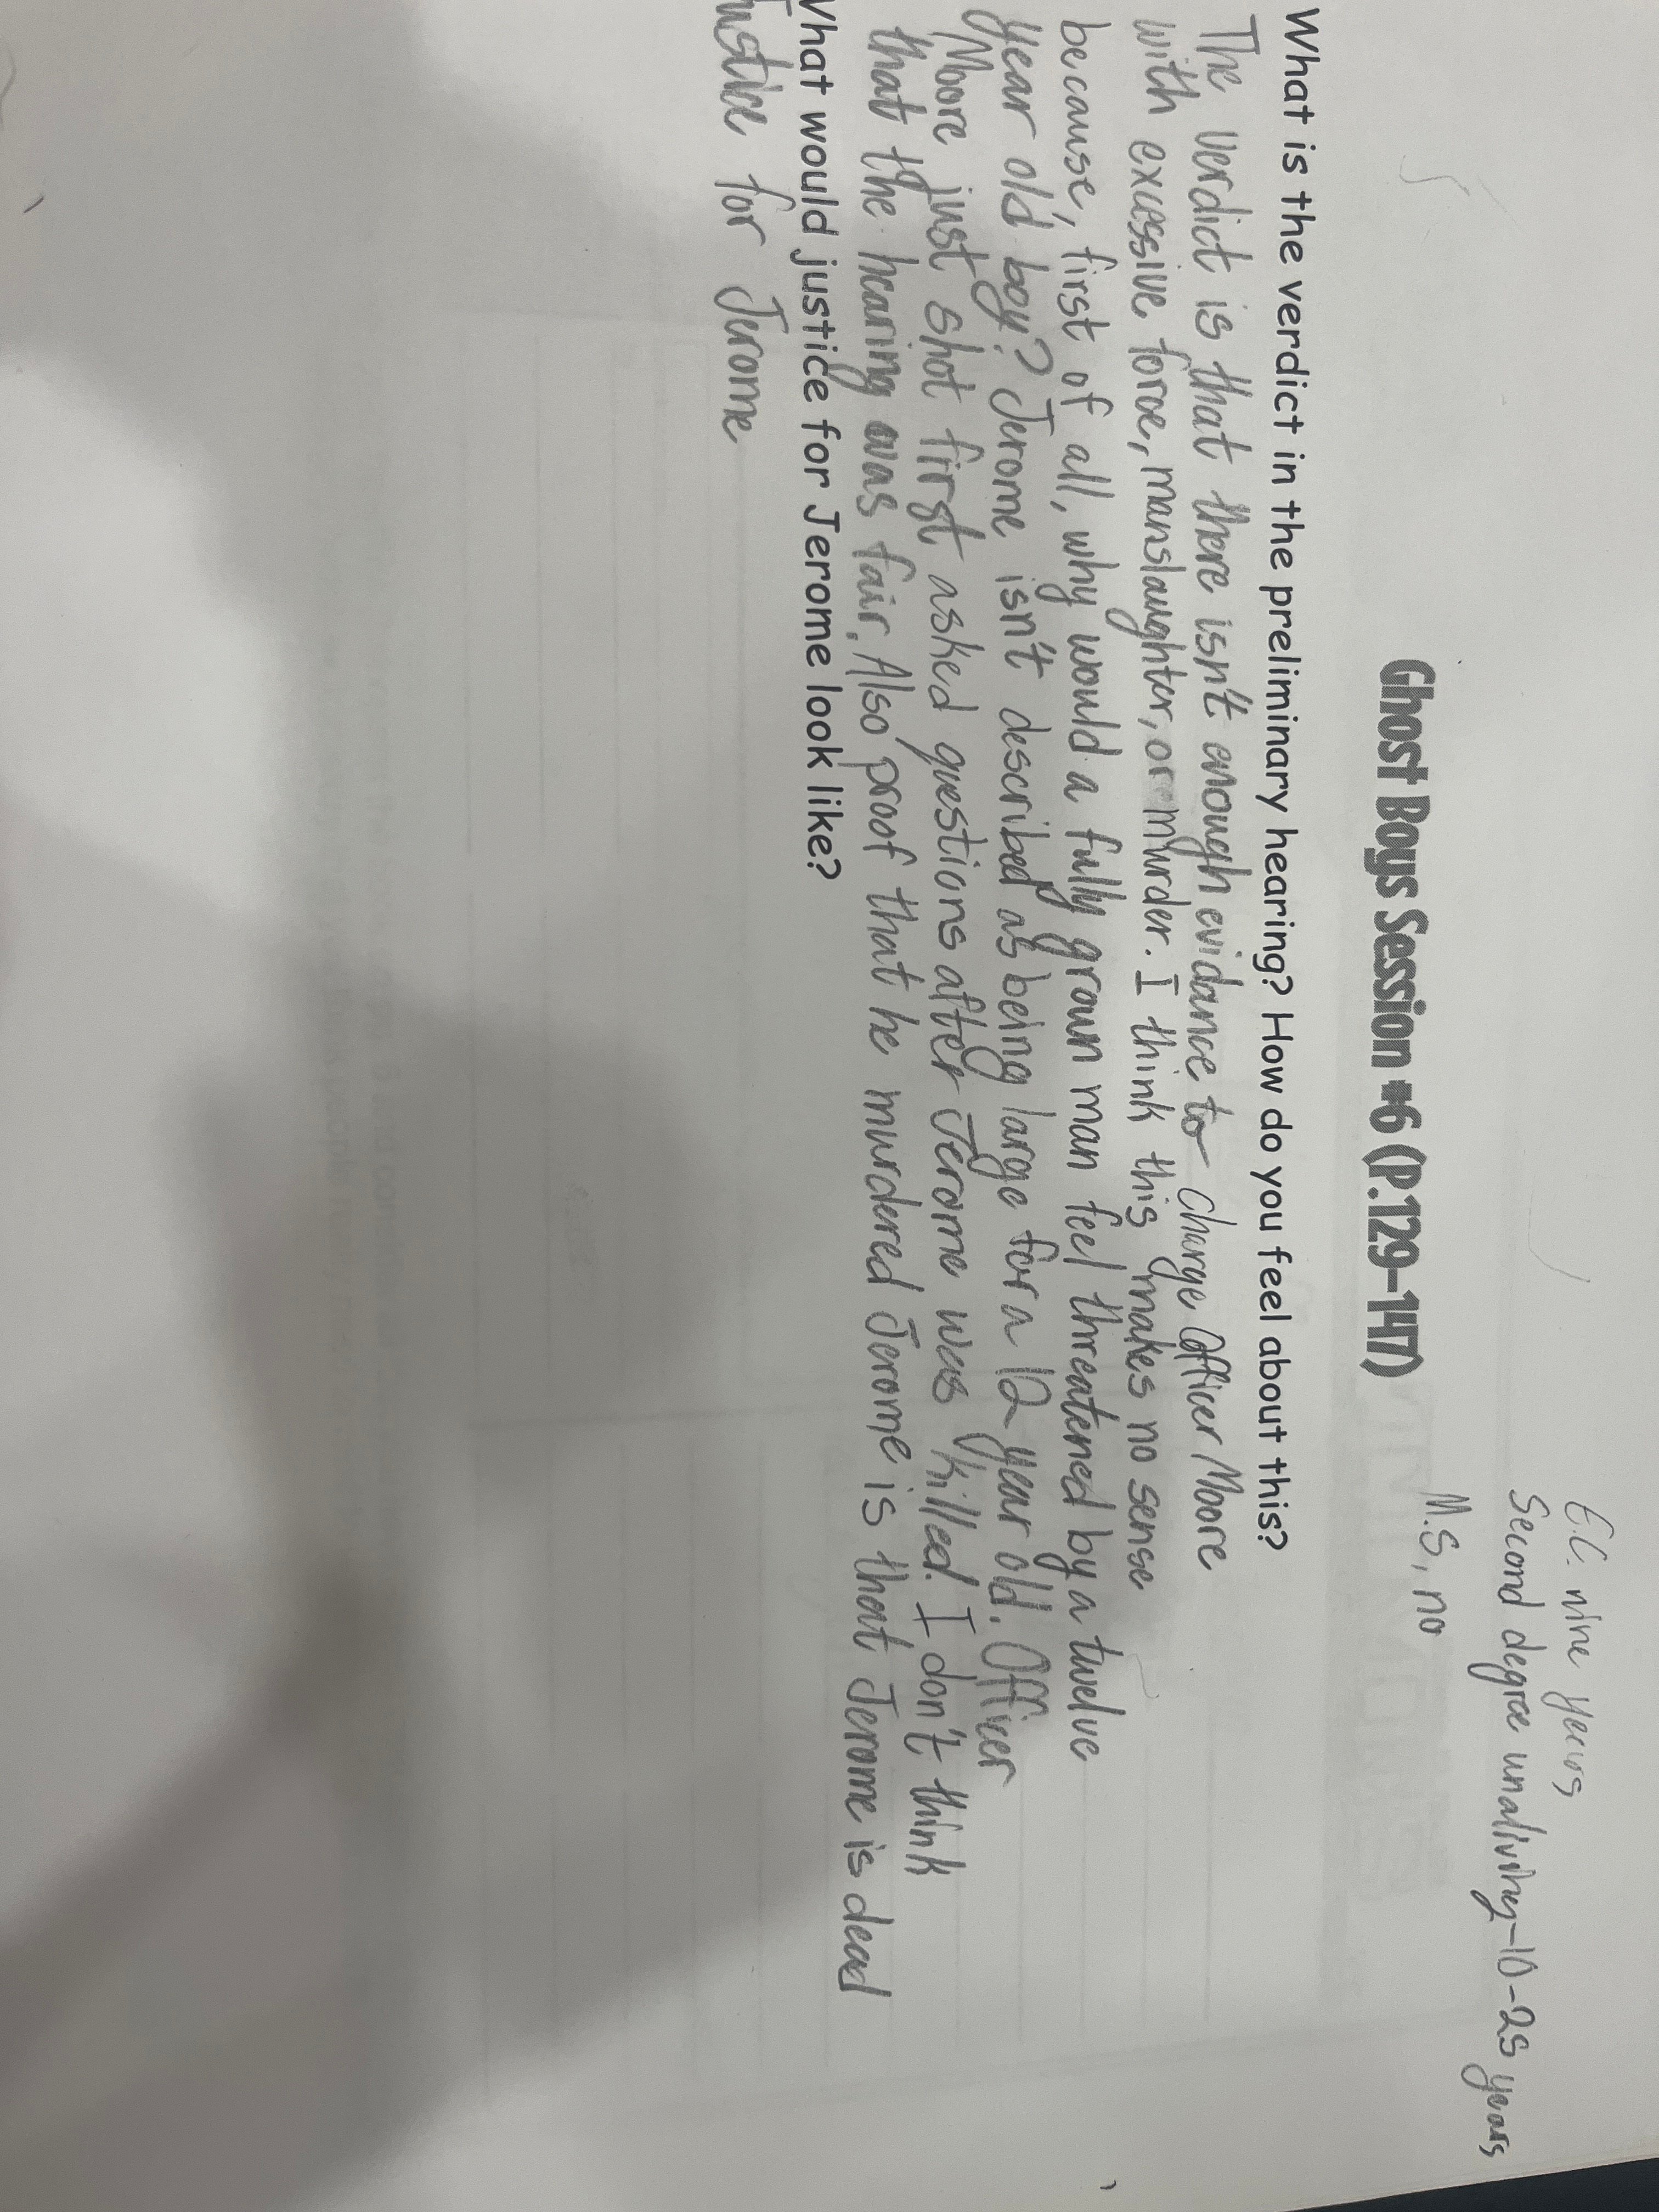 E.C. nine years
Second degree unaliving-10-25 years
M.S, no
Ghost Boys Session #6 (P.129-147)
What is the verdict in the preliminary hearing? How do you feel about this?
The verdict is that there isn't enough evidance to charge Officer Moore
with excessive force, manslaughter, or murder. I think this makes no sense
because, first of all, why would a fully grown man feel threatened by a twelve
year old boy? Jerome isn't described as being large for a 12 year old. Officer
Moore just shot first asked questions after Jerome was killed. I don't think
that the hearing was fair. Also proof that he murdered Jerome is that Jerome is dead
What would justice for Jerome look like?
Justice for Jerome